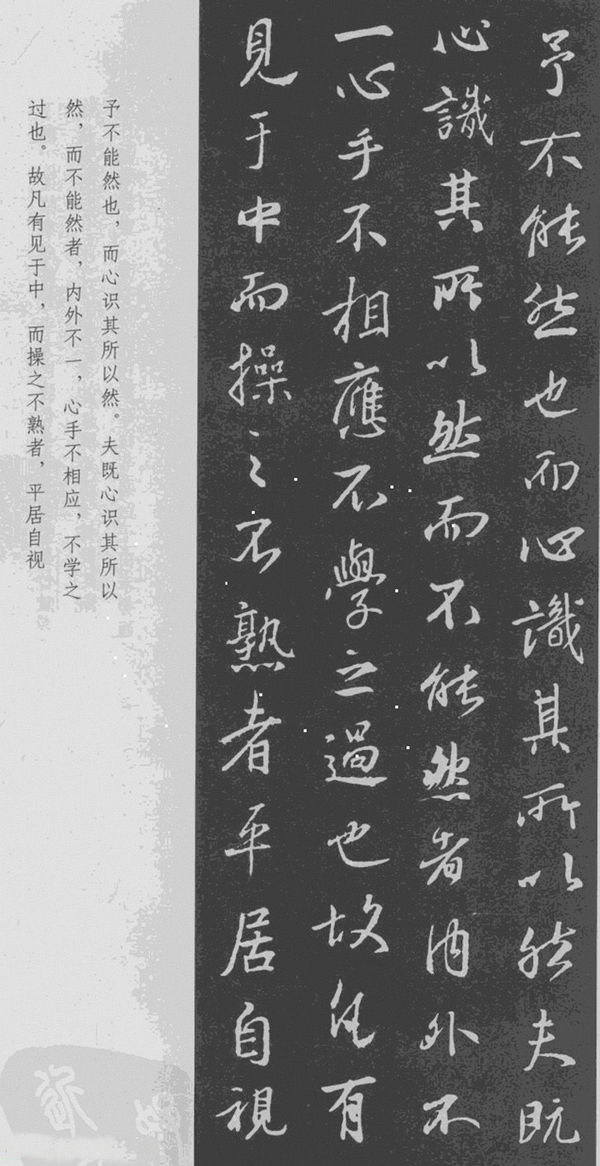 予不能然也而心識其所以然夫既
心識其所以然而不能然者内外不
一心手不相應不學之過也故凡有
見于中而操之不熟者平居自視
予不能然也，而心识其所以然。夫既心识其所以
然，而不能然者，内外不一，心手不相应，不学之
过也。故凡有见于中，而操之不熟者，平居自视